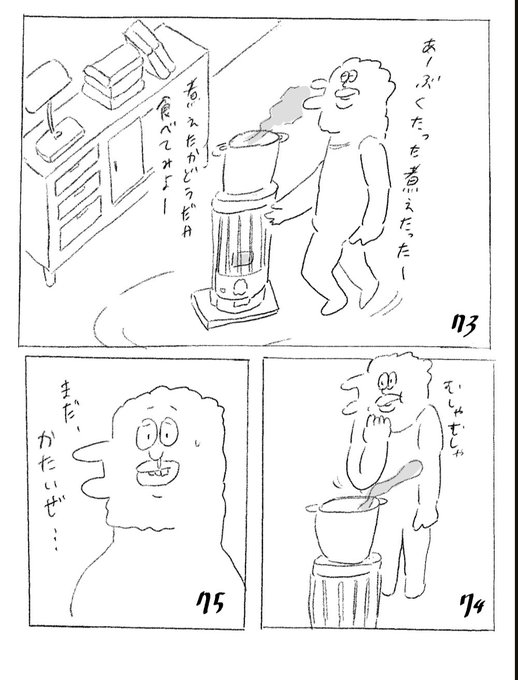 あーぶくたった煮えたったー
煮えたかどうだか
食べてみよー
73
むしゃむしゃ
74
まだ、
かたいぜ…
75